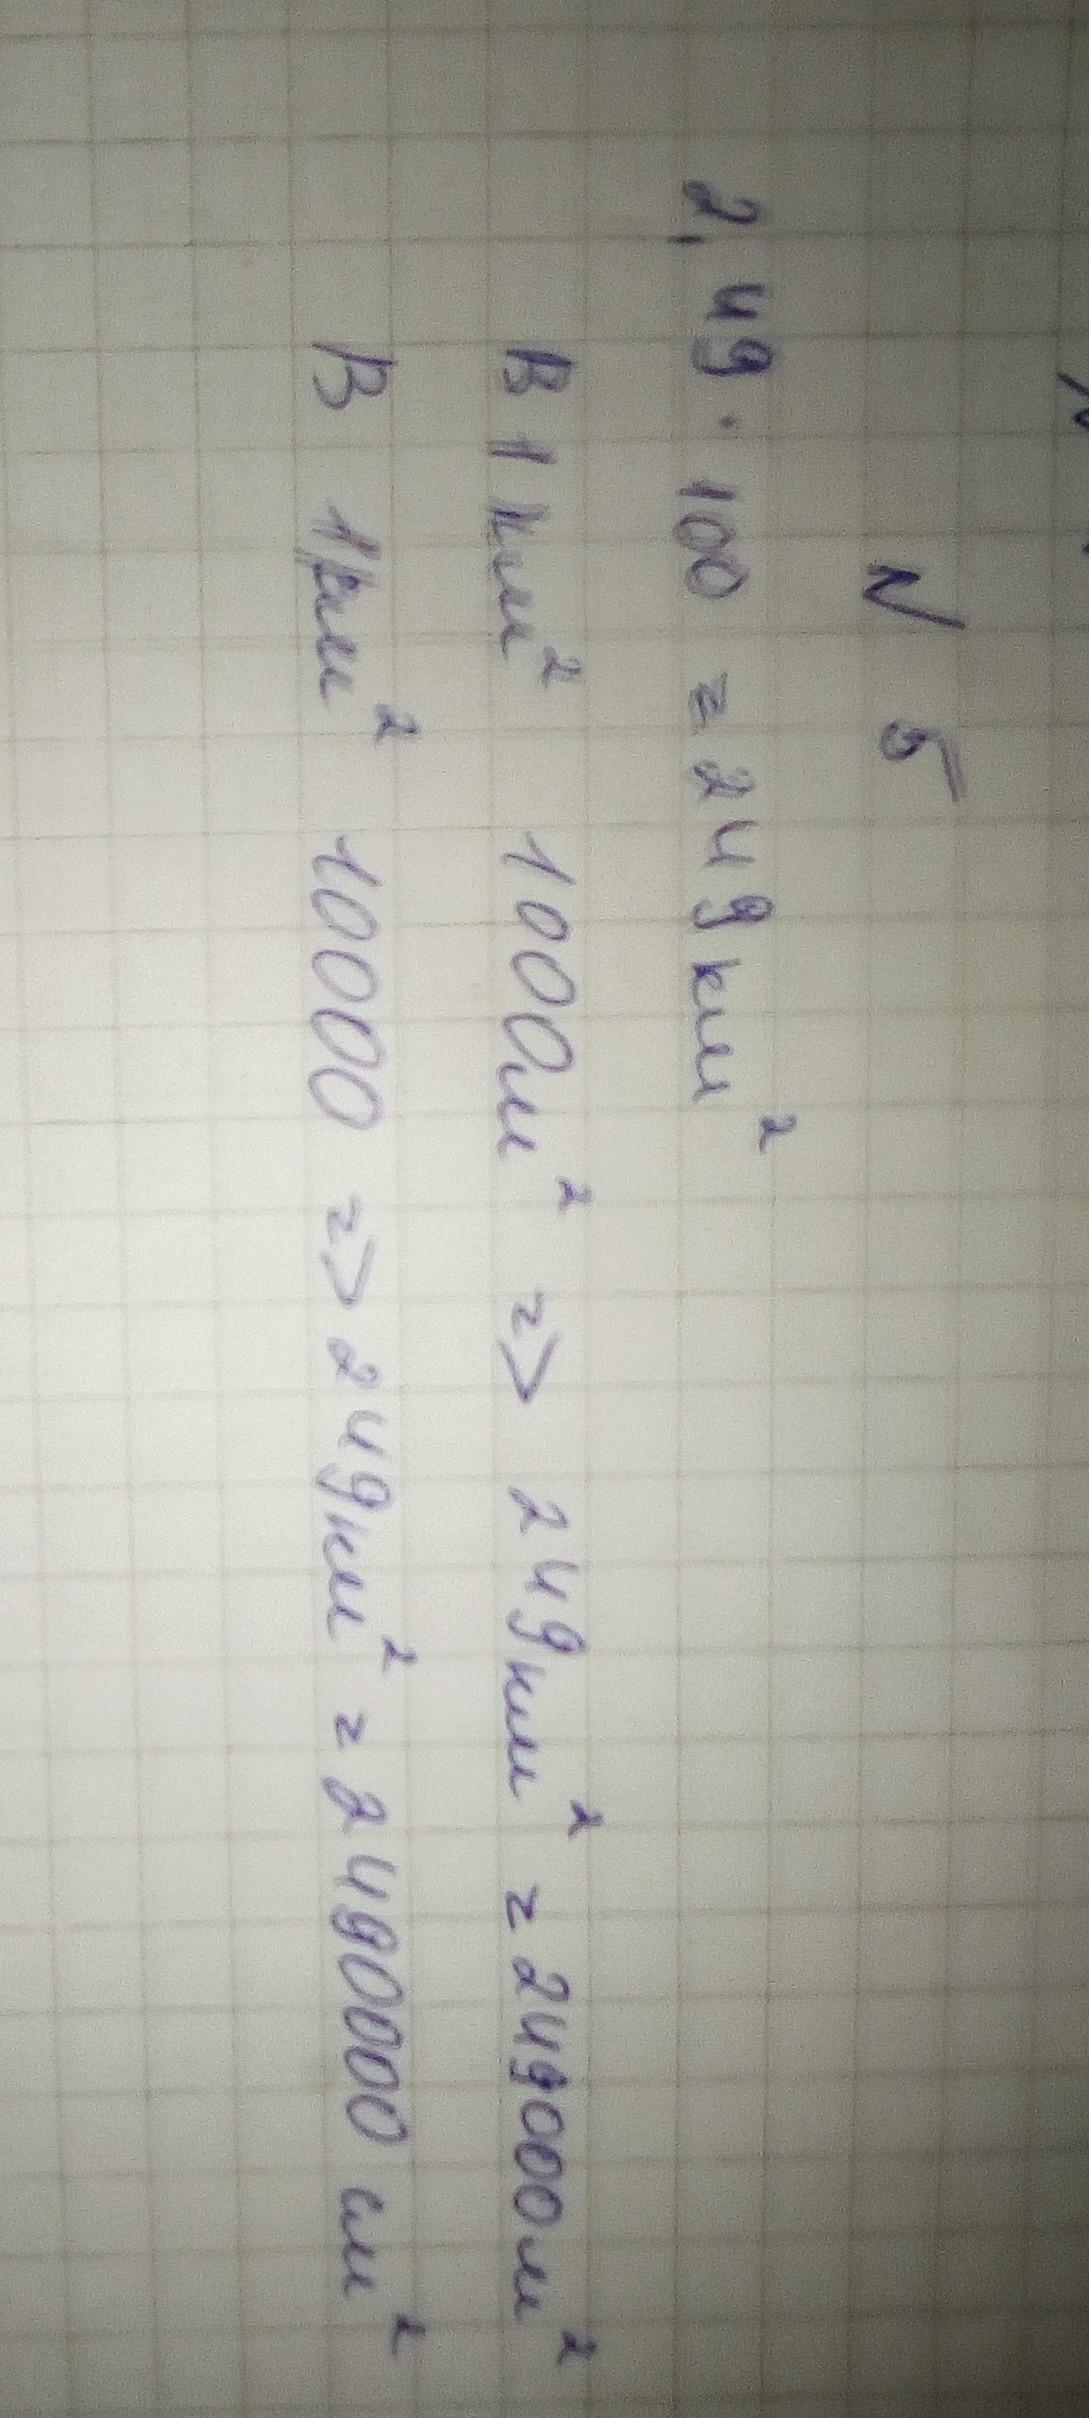 N 5
2,49 · 100 = 249 км²
В 1 км² 1000м² => 249км² = 249000м²
В 1км² 10000 => 249км² = 2490000 см²